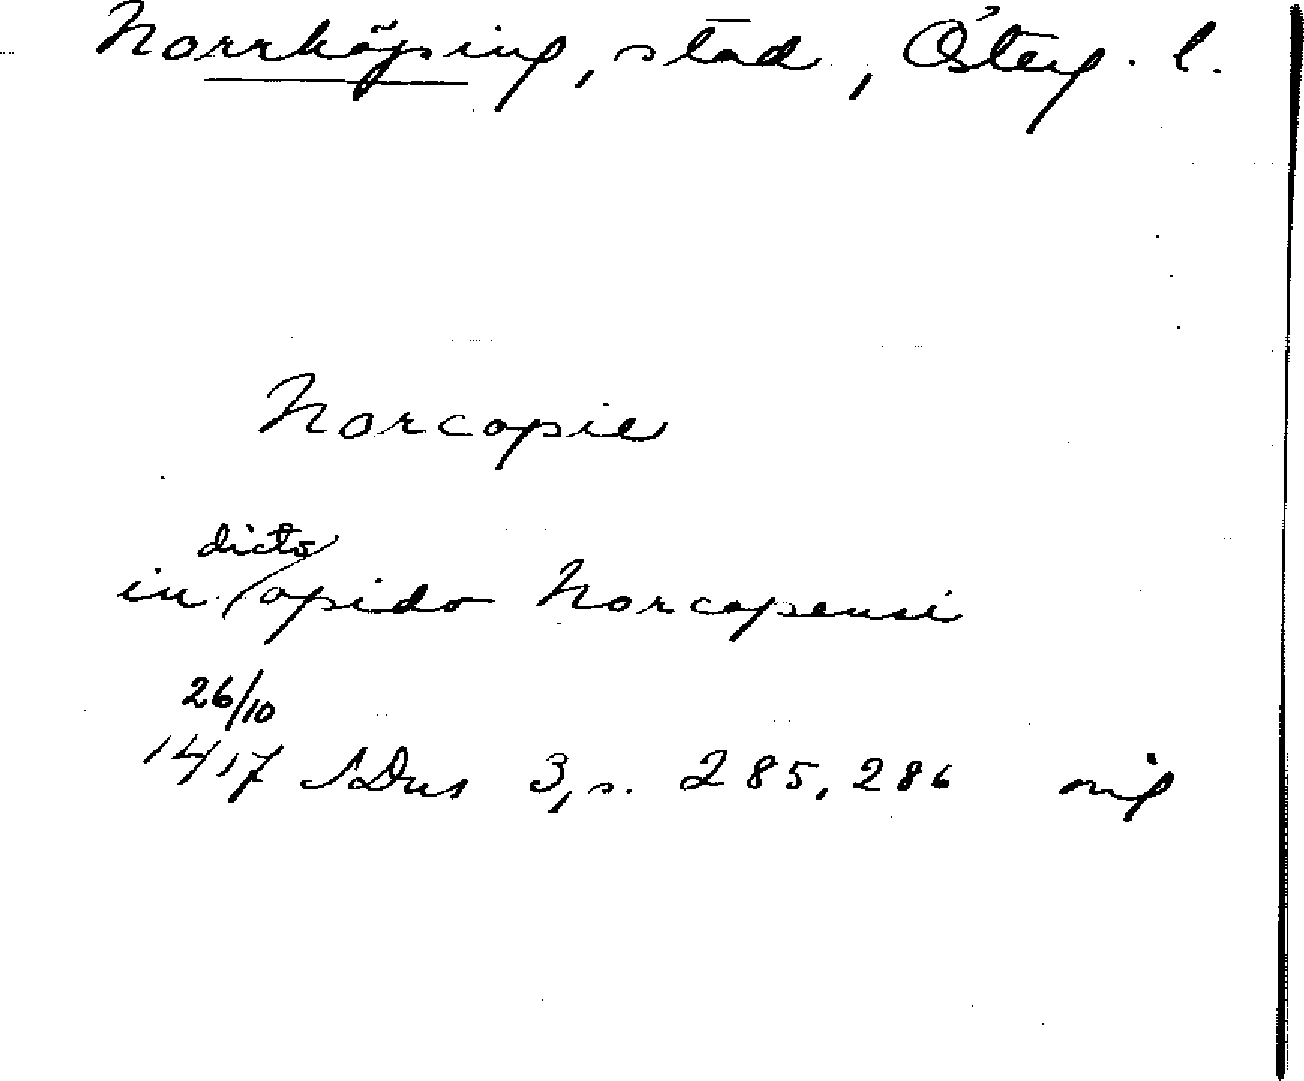 Norrköping, stad, Österg. l.
Norcopie
dicto
in opido Norcopensi
26/10
1417 SDns 3, s. 285, 286 orig